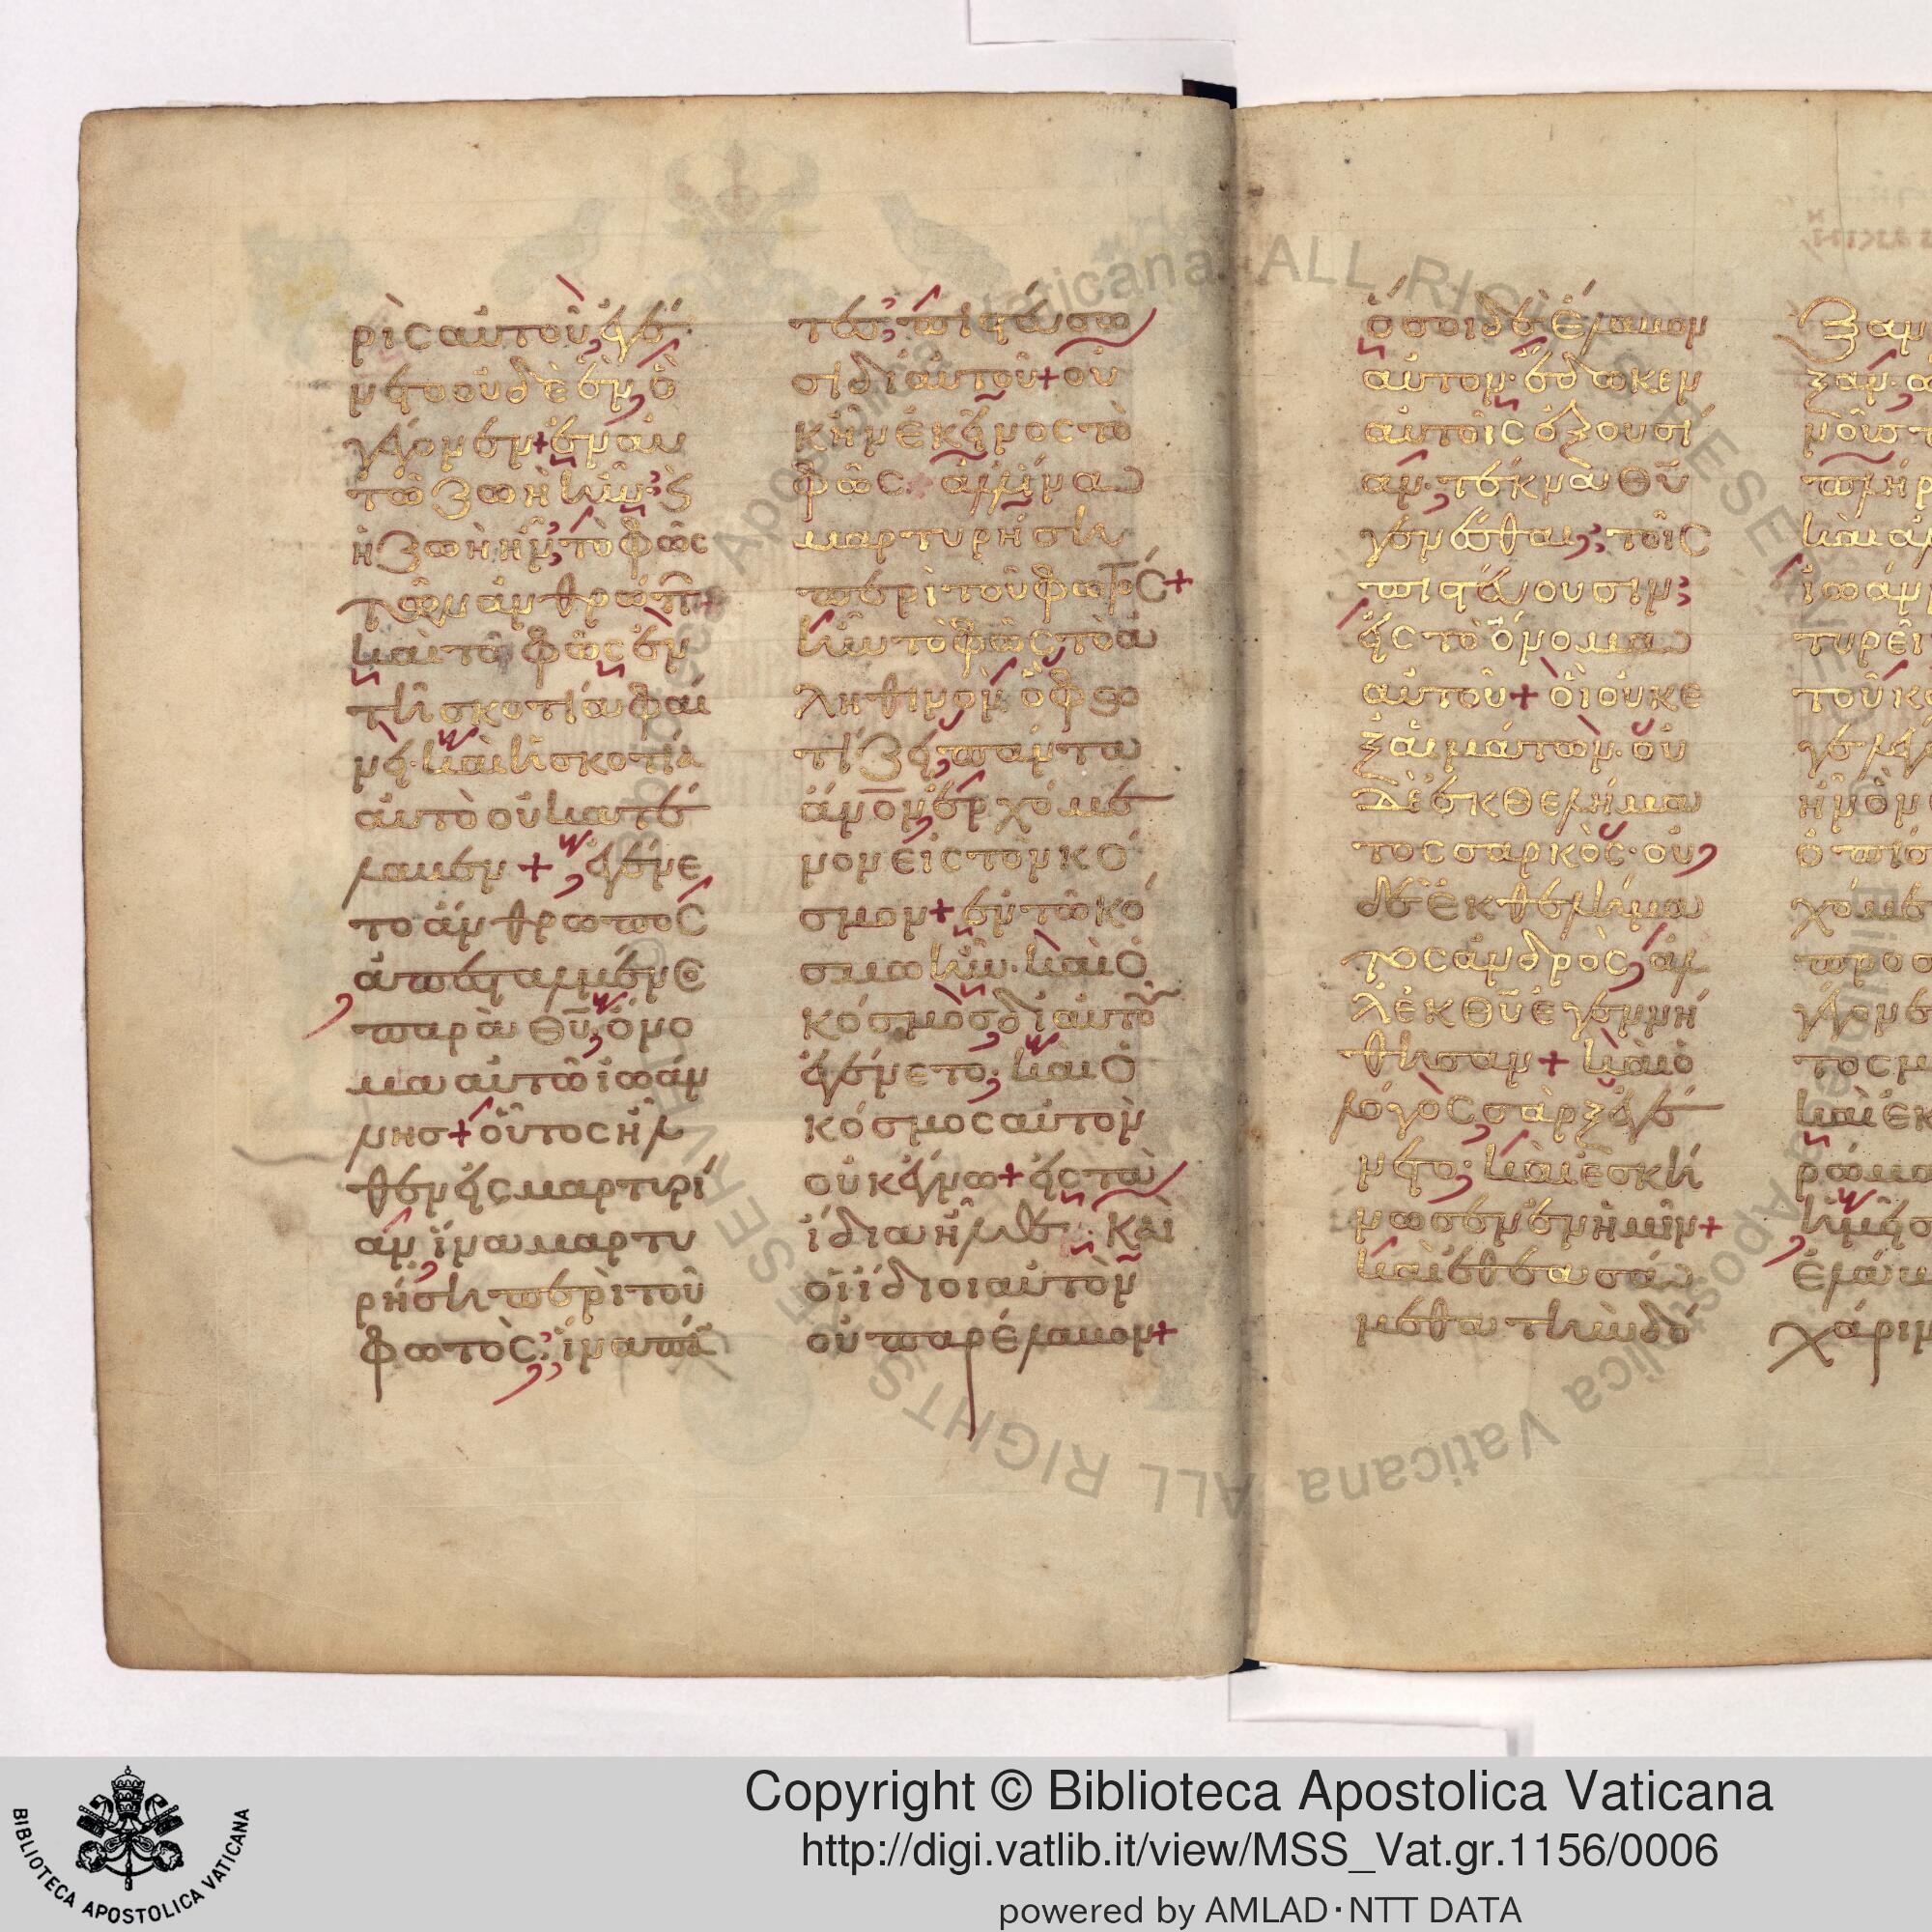 ρὶς αὐτοῦ, ἐγέ
νετο οὐδὲ ἕν, ὃ
γέγονεν + ἐν αὐ
τῷ ζωὴ ἦν· καὶ
ἡ ζωὴ ἦν, τὸ φῶς
τῶν ἀνθρώπ +
καὶ τὸ φῶς ἐν
τῇ σκοτία φαί
νει· καὶ ἡ σκοτία
αὐτὸ οὐ κατέ
λαβεν + ἐγένε
το ἄνθρωπος
ἀπεσταλμένος
παρὰ θῦ, ὄνο
μα αὐτῷ ἰωάν
νης + οὗτος ἦλ
θεν εἰς μαρτυρί
αν, ἵνα μαρτυ
ρήση περὶ τοῦ
φωτὸς, ἵνα πάν
τες, πιστεύσω
σι δι αὐτοῦ + οὐ
κ ἦν ἐκεῖνος τὸ
φῶς· ἀλλ ἵνα
μαρτυρήση
περὶ τοῦ φωτός +
ἦν τὸ φῶς τὸ ἀ
ληθινὸν ὃ φω
τίζει, πάντα
ἄνον, ἐρχόμε
νον εἰς τὸν κό
σμον + ἐν τῷ κό
σμω ἦν· καὶ ὁ
κόσμος δι αὐτοῦ
ἐγένετο, καὶ ὁ
κόσμος αὐτὸν
οὐκ ἔγνω + εἰς τὰ
ἴδια ἦλθε· καὶ
οἱ ἴδιοι αὐτὸν
οὐ παρέλαβον +
ὅσοι δὲ ἔλαβον
αὐτον· ἔδωκεν
αὐτοῖς ἐξουσί
αν· τέκνα θῦ
γενέσθαι, τοῖς
πιστεύουσιν,
εἰς τὸ ὄνομα
αὐτοῦ + οἳ οὐκ ἐ
ξ αἱμάτων· οὐ
δὲ ἐκ θελήμα
τος σαρκὸς· οὐ
δὲ ἐκ θελήμα
τος ἀνδρὸς, ἀλ
λ ἐκ θῦ ἐγεννή
θησαν + καὶ ὁ
λόγος σὰρξ ἐγέ
νετο· καὶ ἐσκή
νωσεν ἐν ἡμῖν +
καὶ ἐθεασά
μεθα τὴν δό
Copyright © Biblioteca Apostolica Vaticana
http://digi.vatlib.it/view/MSS_Vat.gr.1156/0006
powered by AMLAD·NTT DATA
BIBLIOTECA APOSTOLICA VATICANA